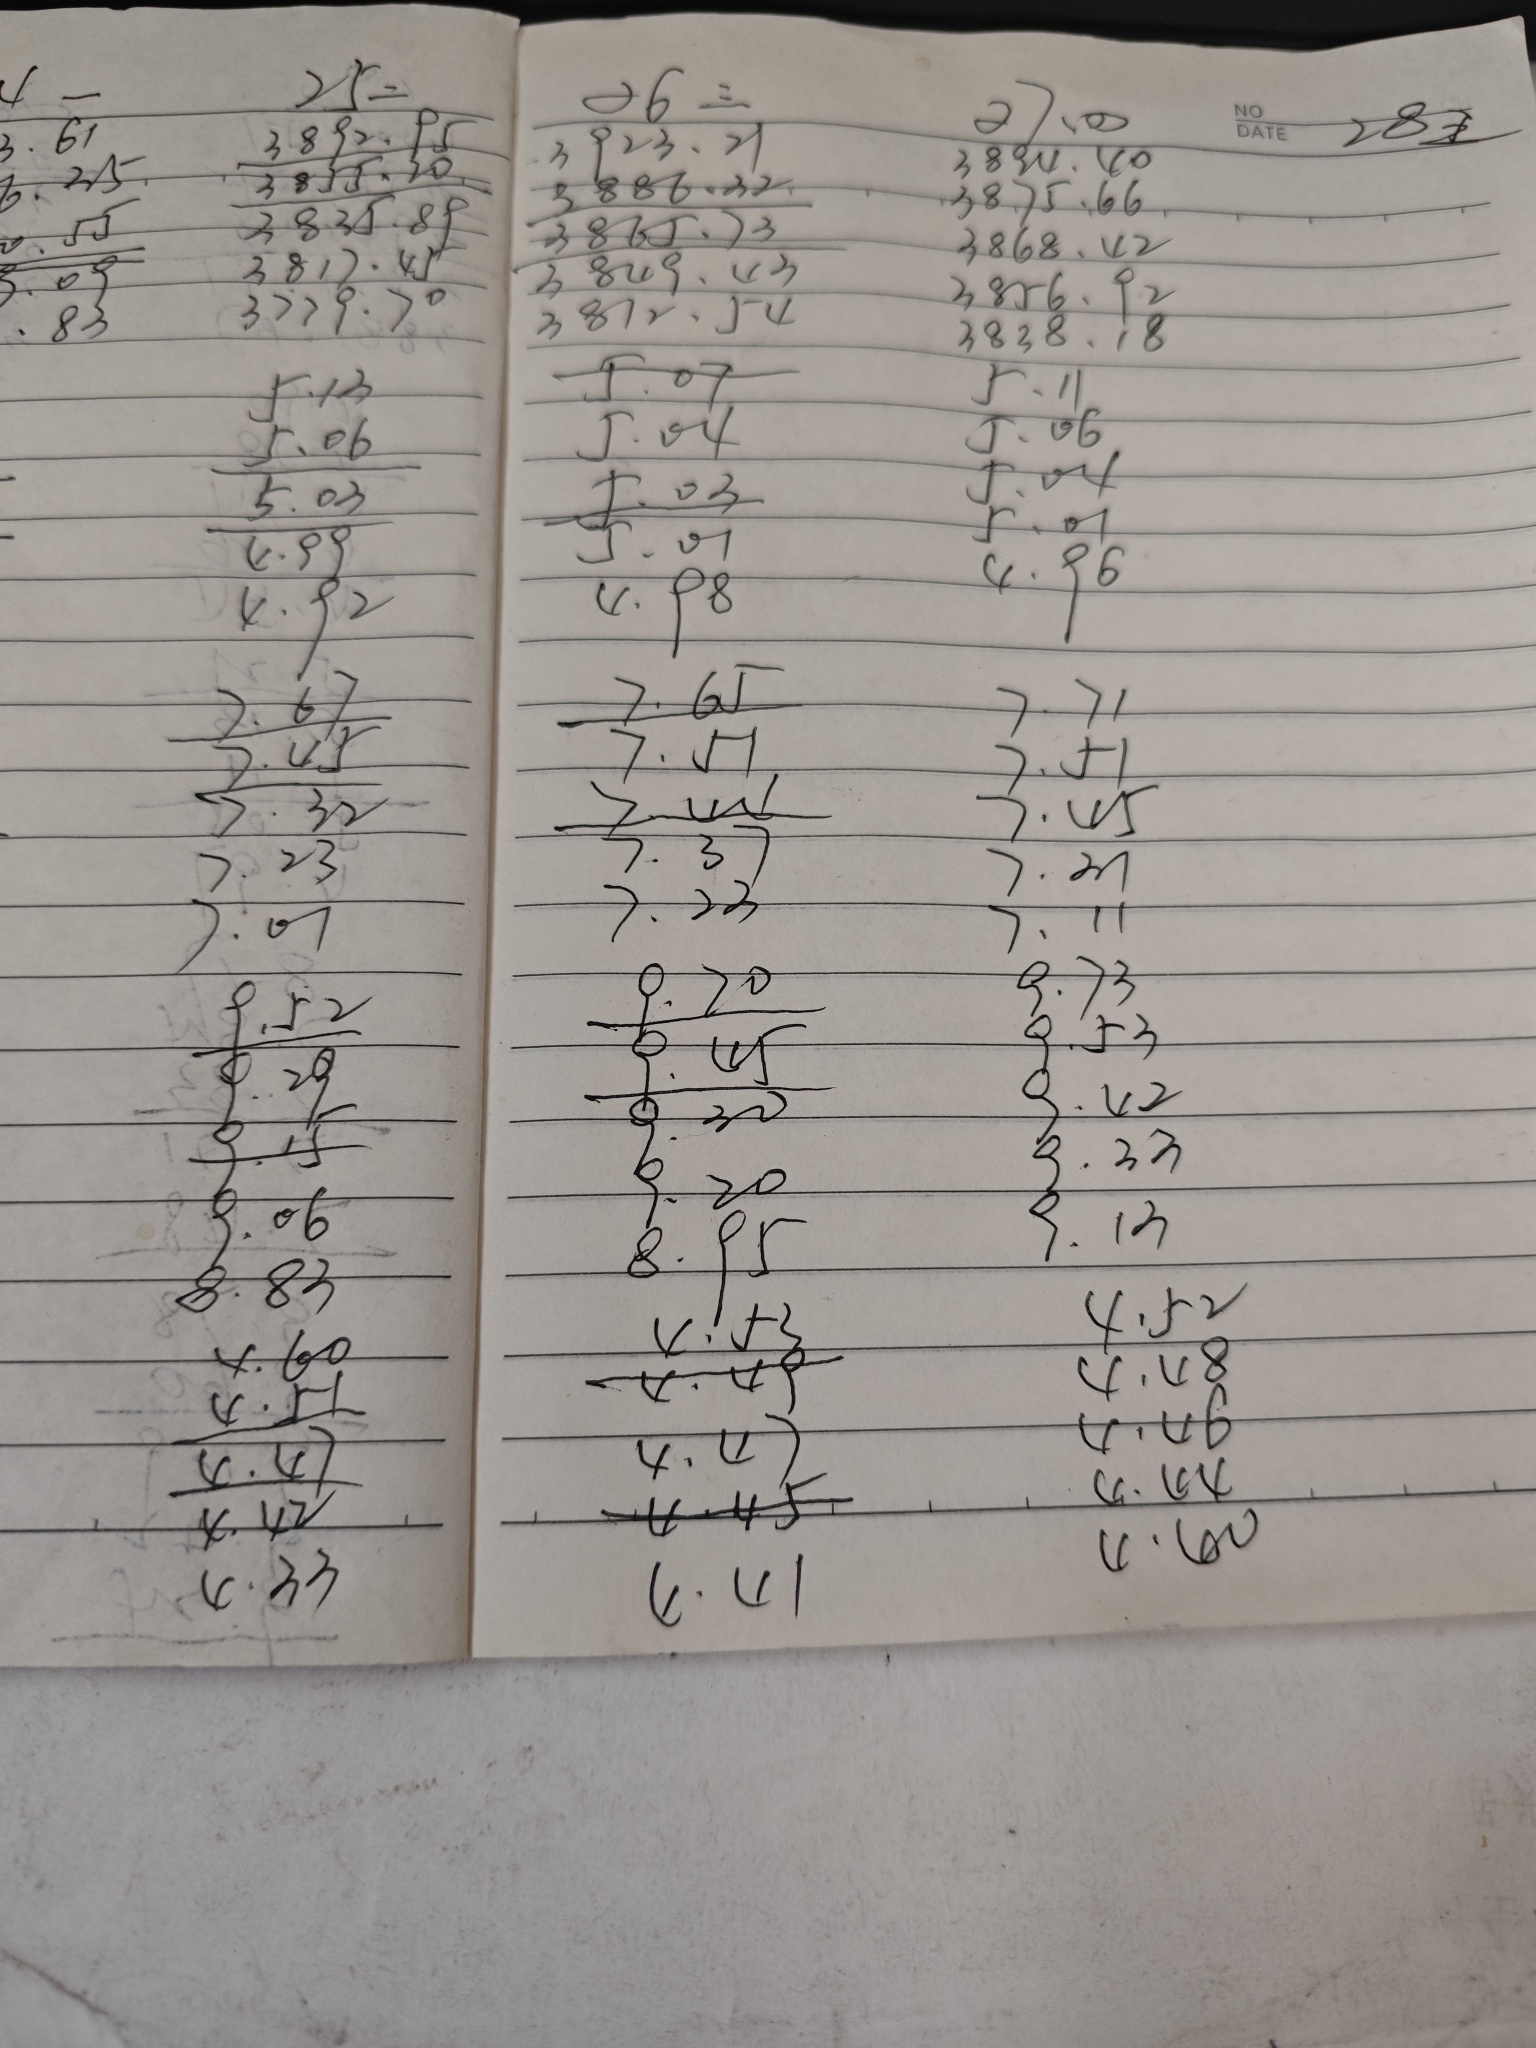 4 一
3.61
6.25
0.55
9.09
.83
25 二
3892.95
3855.30
3835.89
3817.45
3779.70
5.13
5.06
5.03
4.99
4.92
7.67
7.45
7.32
7.23
7.01
9.52
9.29
9.15
9.06
8.83
4.60
4.51
4.47
4.42
4.33
26 三
3923.21
3886.32
3865.73
3849.43
3812.54
5.07
5.04
5.03
5.01
4.98
7.65
7.51
7.37
7.23
9.70
9.45
9.30
9.20
8.95
4.53
4.49
4.47
4.45
4.41
27.
3894.40
3875.66
3868.42
3856.92
3838.18
5.11
5.06
5.04
5.01
4.96
7.71
7.51
7.45
7.11
9.73
9.53
9.42
9.33
9.13
4.52
4.48
4.46
4.44
4.40
NO
DATE
28 五